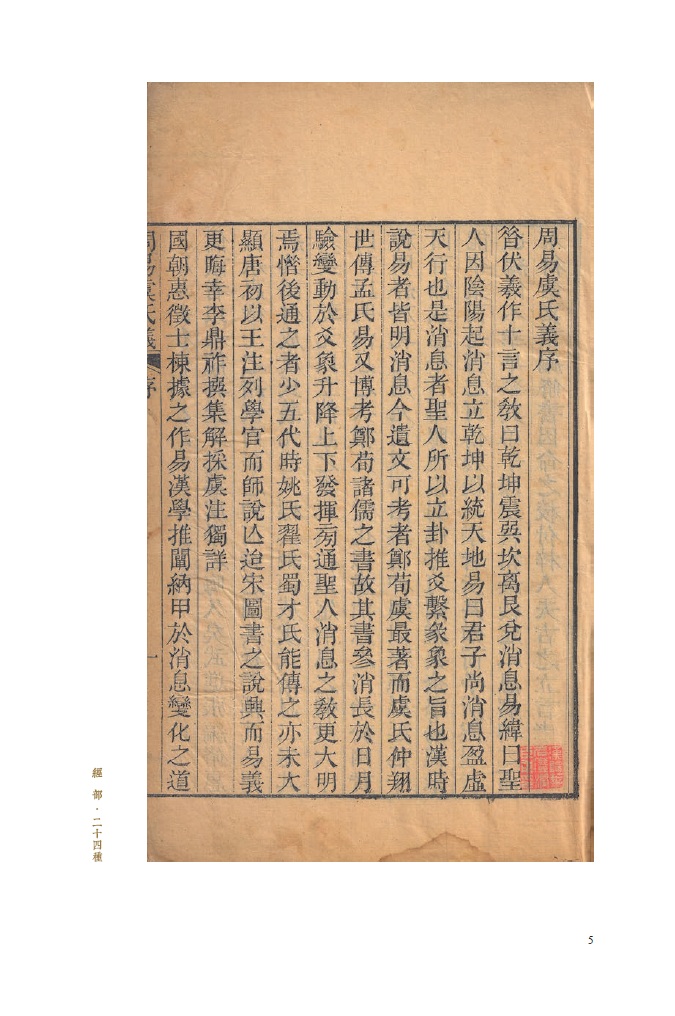 周易虞氏義序
昝伏羲作十言之教曰乾坤震巽坎离艮兌消息易緯曰聖
人因陰陽起消息立乾坤以統天地易曰君子尚消息盈虛
天行也是消息者聖人所以立卦推爻繫彖象之旨也漢時
說易者皆明消息今遺文可考者鄭荀虞最著而虞氏仲翔
世傳孟氏易又博考鄭荀諸儒之書故其書參消長於日月
驗變動於爻象升降上下發揮㫄通聖人消息之教更大明
焉惜後通之者少五代時姚氏翟氏蜀才氏能傳之亦未大
顯唐初以王注列學官而師說亾迨宋圖書之說興而易義
更晦幸李鼎祚撰集解採虞注獨詳
國朝惠徵士棟據之作易漢學推闡納甲於消息變化之道
周易虞氏義
序
一
經部·二十四種
5